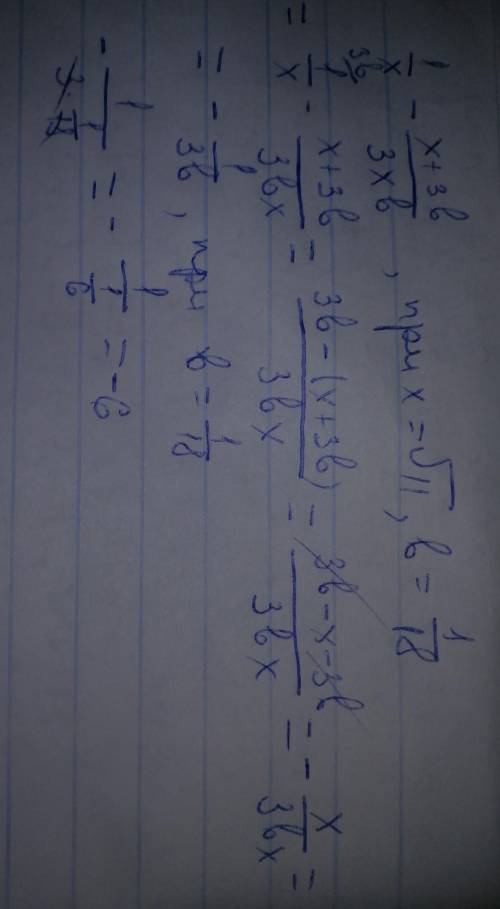 1/x - (x+3b)/(3xb), при x = √11, b = 1/18
= 1/x - (x+3b)/(3bx) = (3b-(x+3b))/(3bx) = (3b-x-3b)/(3bx) = - x/(3bx) =
= - 1/(3b), при b = 1/18
- 1/(3·1/18) = - 1/(1/6) = -6